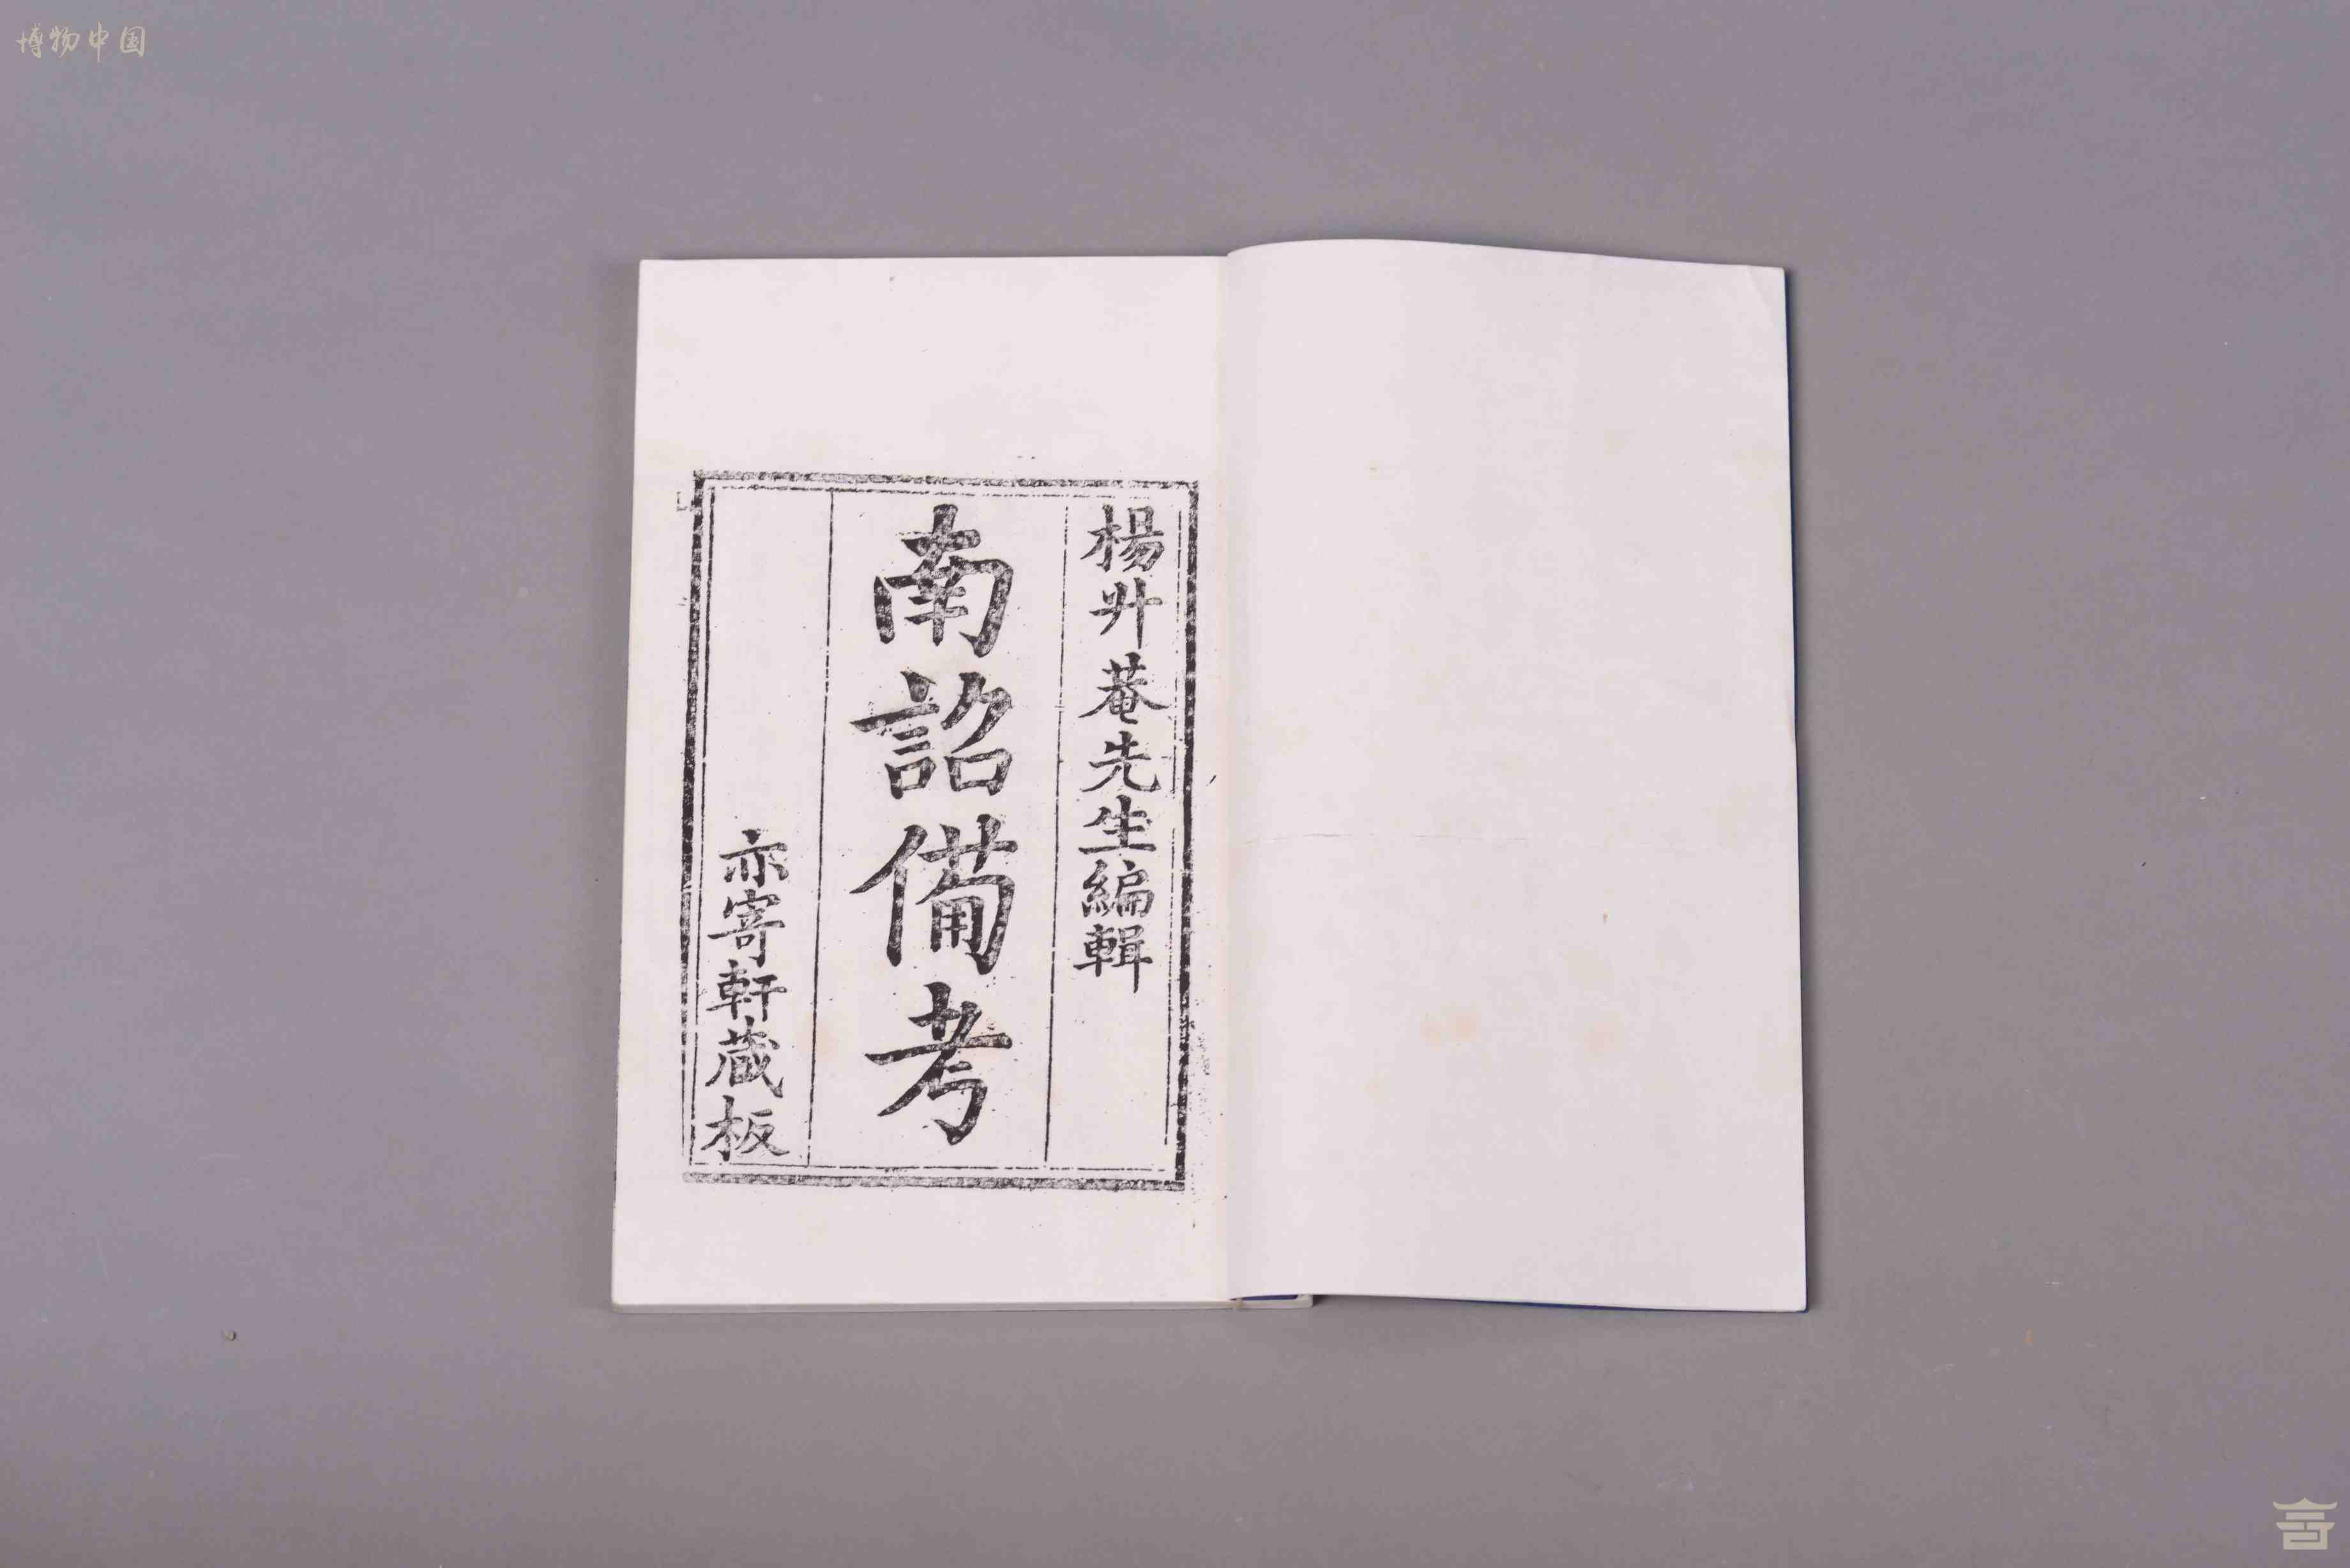 博物中国
楊升菴先生編輯
南詔備考
亦寄軒藏板